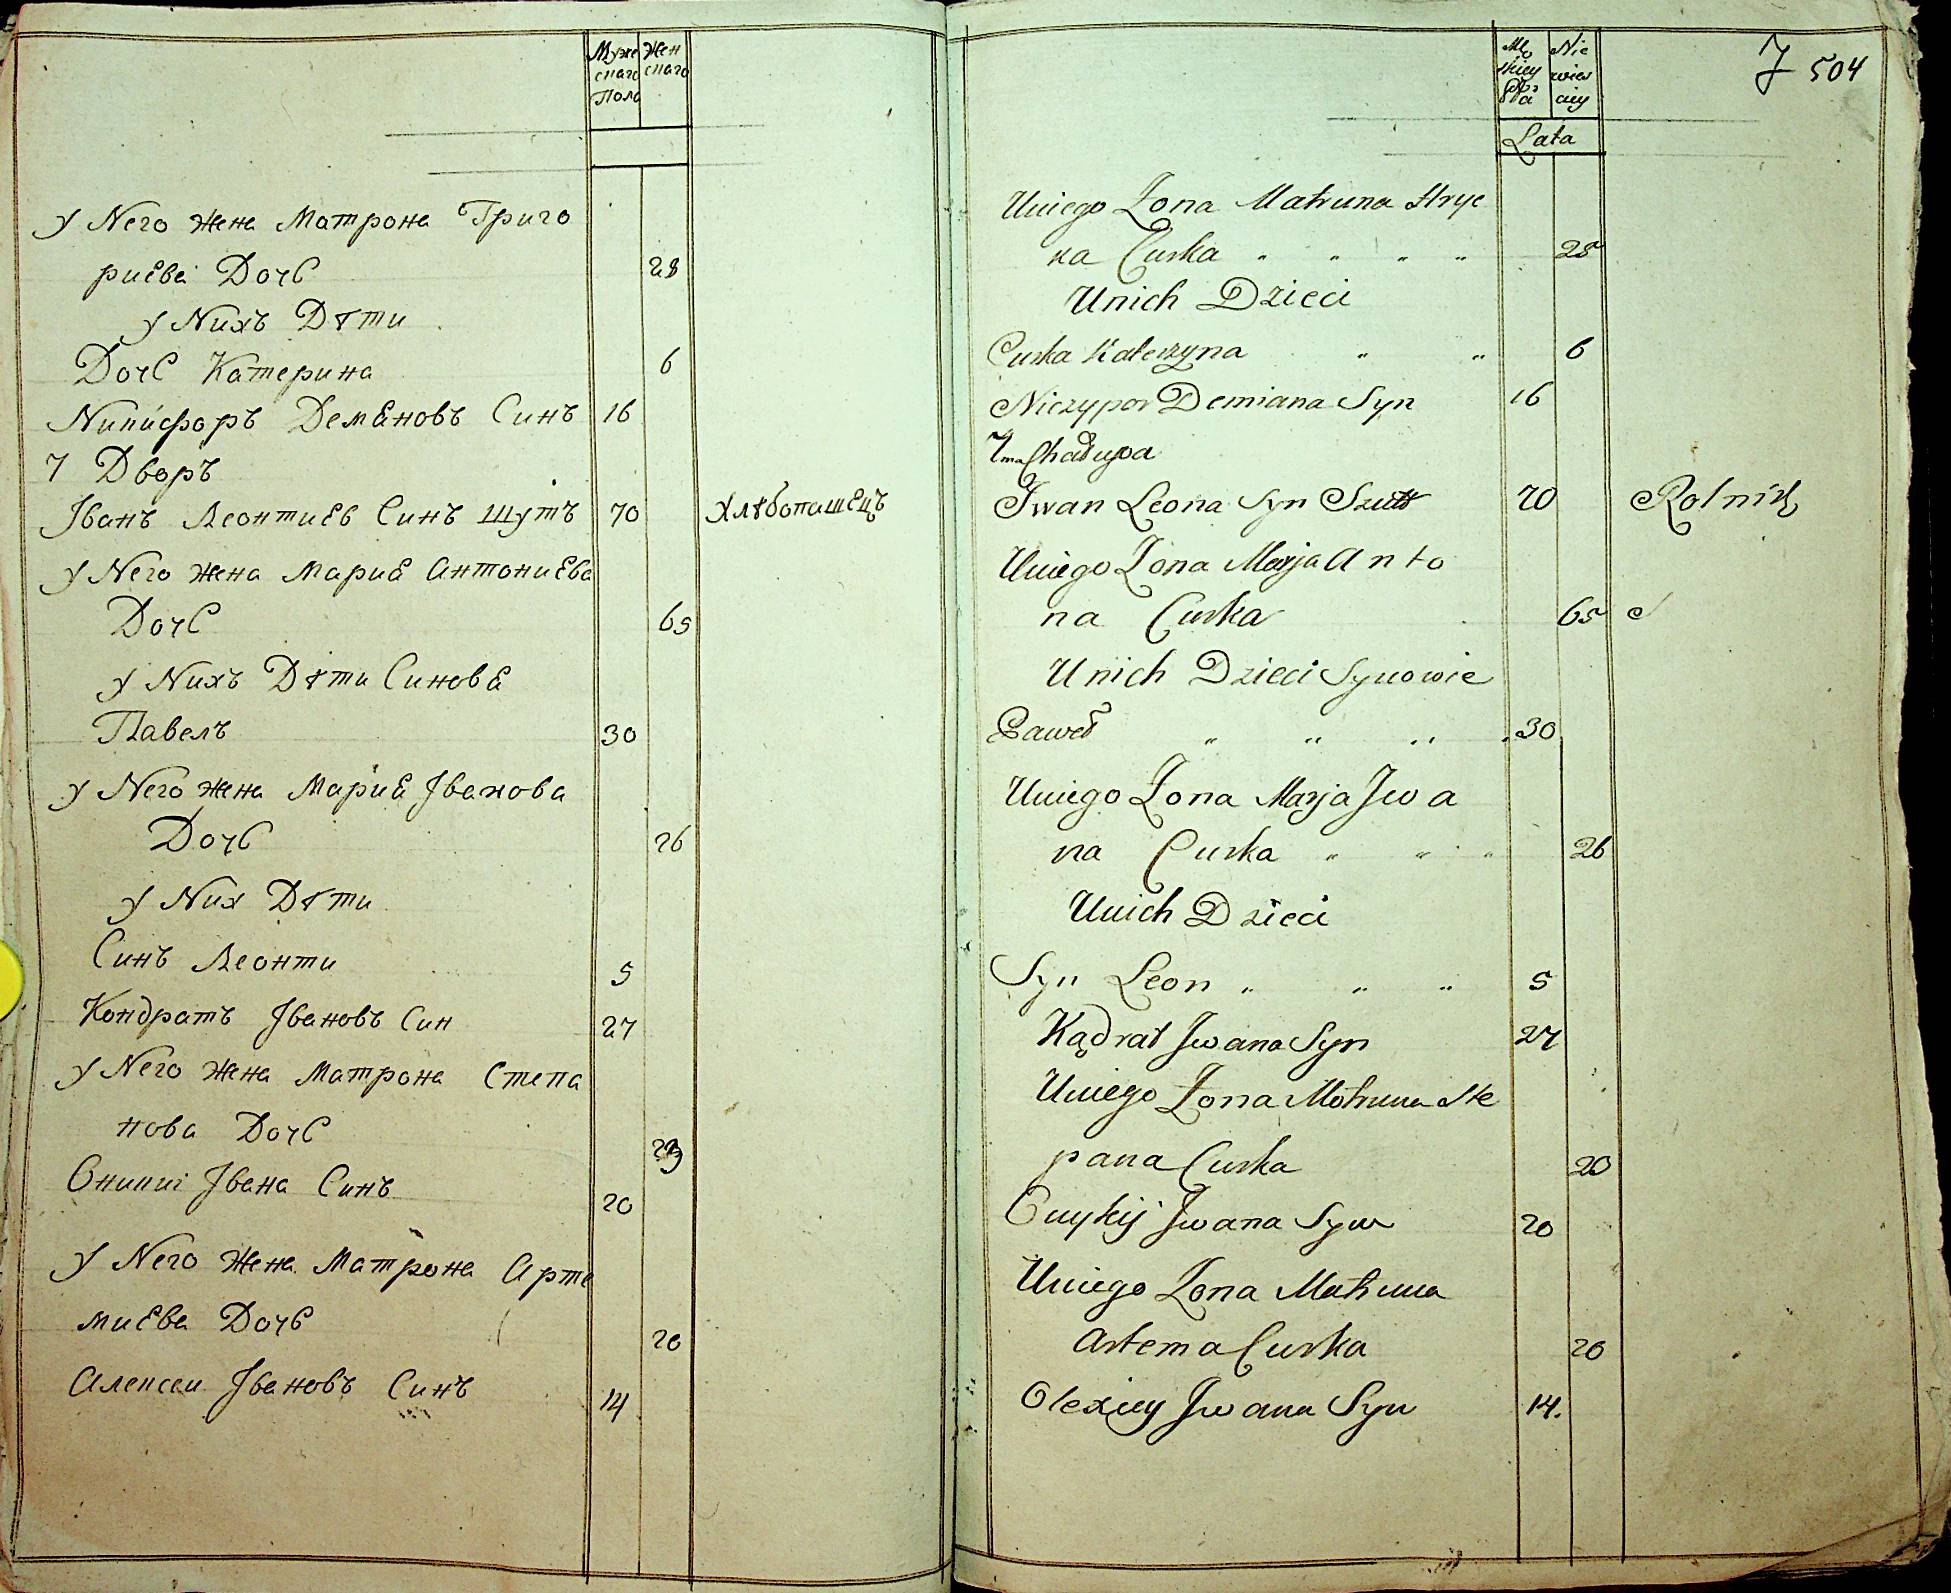 Муже Жен
скаго скаго
Пола
У Него жена Матрона Григо
риева Дочь 28
У Нихъ Дѣти
Дочь Катерина 6
Никифоръ Демяновъ Синъ 16
7 Дворъ
Іванъ Леонтиев Синъ Шутъ 70 Хлѣбопашецъ
У Него жена Мария Антониева
Дочь 65
У Нихъ Дѣти Синовя
Павелъ 30
У Него жена Мария Іванова
Дочь 26
У Них Дѣти
Синъ Леонти 5
Кондратъ Івановъ Син 27
У Него жена Матрона Степа
нова Дочь
Оникиі Івана Синъ 20
У Него Жена Матрона Арте
миева Дочь 20
Алексеи Івановъ Синъ 14
7 504
Lata
Uniego Żona Matruna Hryc
ka Curka " " " " 28
Unich Dzieci
Curka Katerzyna " " 6
Niczypor Demiana Syn 16
7ma Chałupa
Jwan Leona Syn Szutt 70 Rolnik
Uniego Żona Marja Anto
na Curka 65
Unich Dzieci Synowie
Paweł " " " " 30
Uniego Żona Marja Jwa
na Curka " " " 26
Unich Dzieci
Syn Leon " " " 5
Kądrat Jwana Syn 27
Uniego Żona Motruna Ste
pana Curka 20
Onykij Jwana Syn 20
Uniego Żona Matruna
Artema Curka 20
Olexiey Jwana Syn 14.